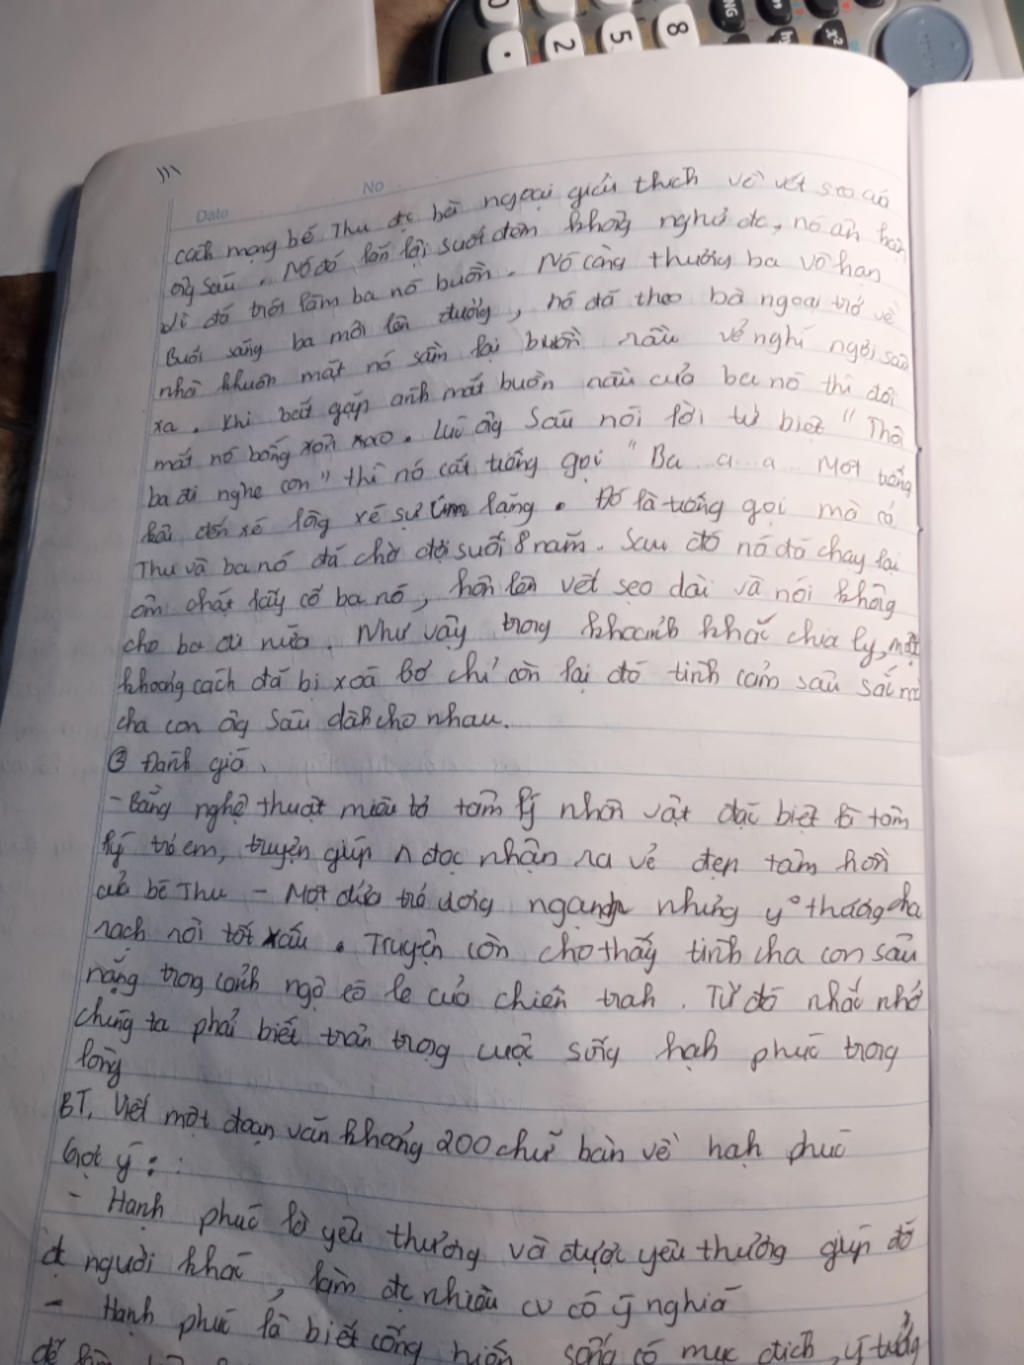 0
8
5
2
.
NG
hy
x²
Date
No
cách mạng bé Thu đc bà ngoại giải thích về vết sẹo của
ông Sáu. Nó đó lăn lội suốt đêm không nghủ đc, nó ân hận
vì đó trót làm ba nó buồn. Nó càng thương ba vô hạn
Buổi sáng ba mới lên đường, nó đã theo bà ngoại trở về
nhà khuôn mặt nó sầm lại buồn rầu vẻ nghĩ ngợi sâu
xa. Khi bắt gặp ánh mắt buồn rầu của ba nó thì đôi
mắt nó bỗng xôn xao. Lúc ông Sáu nói lời từ biệt "Thôi
ba đi nghe con" thì nó cất tiếng gọi "Ba a a Một tiếng
kêu đến xé lòng xé sự im lặng. Đó là tiếng gọi mà cả
Thu và ba nó đã chờ đợi suốt 8 năm. Sau đó nó đó chạy lại
ôm chặt lấy cổ ba nó, hôn lên vết sẹo dài và nói không
cho ba đi nữa. Như vậy trong khoảnh khắc chia ly, mọi
khoảng cách đã bị xoá bỏ chỉ còn lại đó tình cảm sâu sắc mà
cha con ông Sáu dành cho nhau.
③ Đánh giá.
- Bằng nghệ thuật miêu tả tâm lý nhân vật đặc biệt là tâm
lý trẻ em, truyện giúp n đọc nhận ra vẻ đẹp tâm hồn
của bé Thu - Một đứa trẻ ương ngạnh nhưng y° thương cha
rạch ròi tốt xấu. Truyện còn cho thấy tình cha con sâu
nặng trong cảnh ngộ éo le của chiến tranh. Từ đó nhắc nhở
chúng ta phải biết trân trọng cuộc sống hạnh phúc trong
lòng
BT, Viết một đoạn văn khoảng 200 chữ bàn về hạnh phúc
Gợi ý:
- Hạnh phúc là yêu thương và được yêu thương giúp đỡ
đc người khác, làm đc nhiều cv có ý nghĩa
- Hạnh phúc là biết cống hiến sống có mục đích, ý tưởng
để